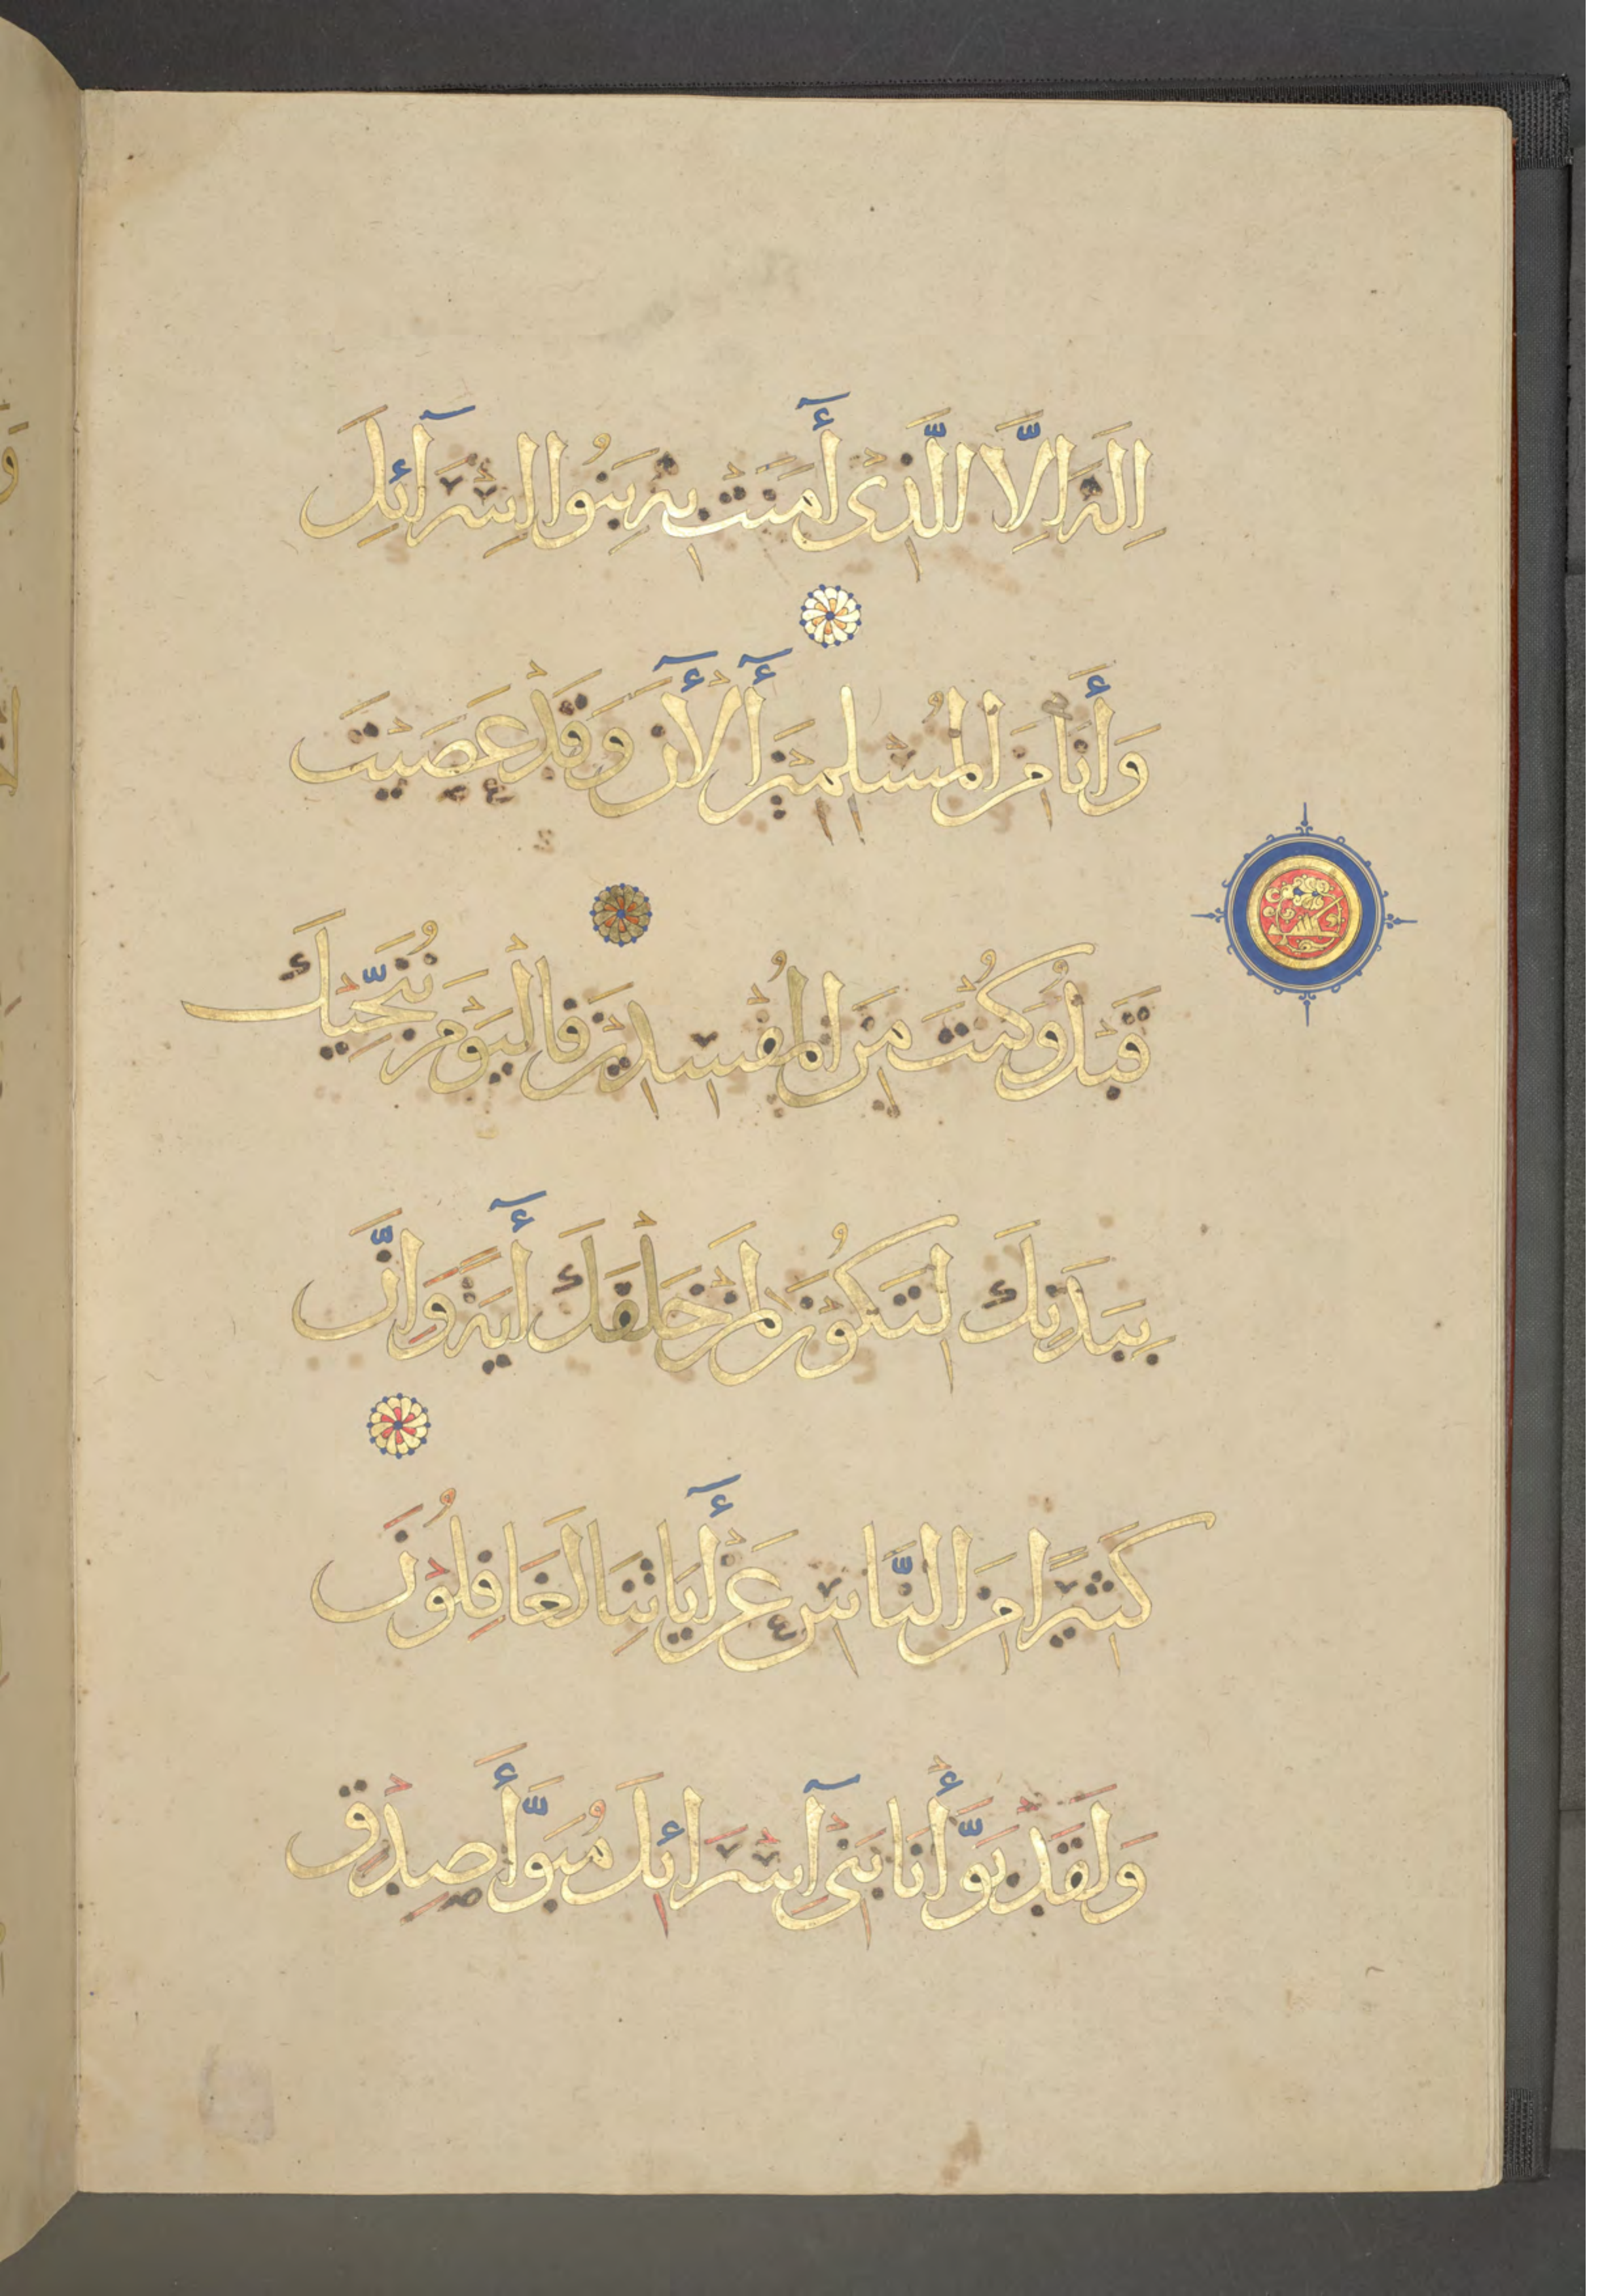 اِلَهَ اِلَّا الَّذِى أٓمَنَتْ بِهِ بَنُوا اِسْرَآئِلَ
وَأَنَا مِنَ الْمُسْلِمِيْنَ أٓلْأٓنَ وَقَدْ عَصَيْتَ
قَبْلُ وَكُنْتَ مِنَ الْمُفْسِدِيْنَ فَالْيَوْمَ نُنَجِّيْكَ
بِبَدَنِكَ لِتَكُوْنَ لِمَنْ خَلْفَكَ أٓيَةً وَاِنَّ
كَثِيْرًا مِنَ النَّاسِ عَنْ أٓيَاتِنَا لَغَافِلُوْنَ
وَلَقَدْ بَوَّأْنَا بَنِىْٓ اِسْرَائِلَ مُبَوَّأَ صِدْقٍ